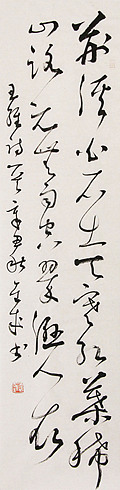 荆溪白石出天寒红葉稀
山路元無雨空翠濕人衣
王維詩 秋 書